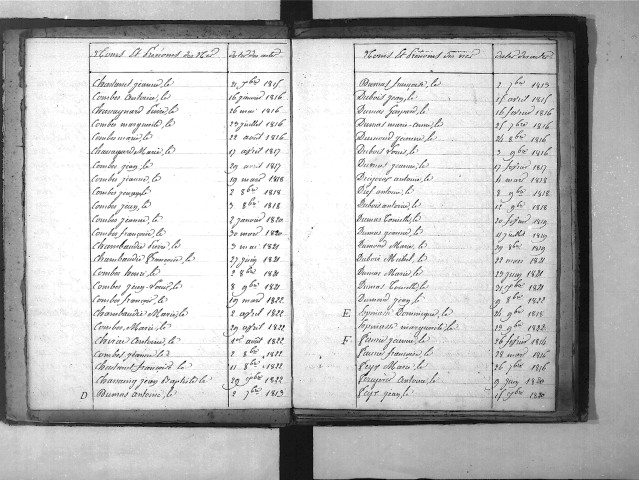 Noms Et Prénoms des Nés dates des actes
Chastanet jeanne, le 21 7bre 1815
Combes Antoine, le 16 janvier 1816
Chavagnard Pierre, le 26 mai 1816
Combes marguerite, le 29 juillet 1816
Combes marie, le 22 août 1816
Chavagnard Marie, le 17 avril 1817
Combes jean, le 29 avril 1817
Combes jeanne, le 19 mars 1818
Combes joseph, le 2 8bre 1818
Combes jean, le 3 8bre 1818
Combes jeanne, le 2 janvier 1820
Combes françoise, le 30 mars 1820
Chambaudie Pierre, le 3 mai 1821
Chambaudie Françoise, le 27 juin 1821
Combes Louis, le 2 8bre 1821
Combes jean-Louis, le 8 9bre 1821
Combes françois, le 19 mars 1822
Chambaudie Marie, le 2 avril 1822
Combes Marie, le 29 avril 1822
Antoine, le 1er août 1822
Combes jeanne, le 2 8bre 1822
Chastanet françois, le 11 8bre 1822
jean Baptiste, le 29 1822
D Dumas antoine, le 2 7bre 1813
Noms Et Prénoms des nés dates des actes
Dumas françoise, le 2 7bre 1813
Dubois jean, le 15 avril 1815
Dumas le 16 février 1816
Dumas marie-anne, le 25 7bre 1816
jeanne, le 24 8bre 1816
Dubois Louis, le 2 9bre 1816
Dumas jeanne, le 17 février 1817
antoine, le 4 mars 1818
antoine, le 8 9bre 1818
Dubois antoine, le 12 9bre 1818
Dumas le 20 février 1819
Dumas jeanne, le 11 juillet 1819
Dumond Marie, le 29 8bre 1819
Dubois Michel, le 22 mars 1821
Dumas Marie, le 23 juin 1821
Dumas le 21 7bre 1821
Dumond jean, le 9 8bre 1822
E Espinasse Dominique, le 21 9bre 1818
Espinasse marguerite, le 19 9bre 1822
F Faurie jeanne, le 26 février 1814
Faurie françoise, le 28 mars 1815
Marie, le 26 7bre 1816
Antoine, le 9 juin 1820
jean, le 15 7bre 1820